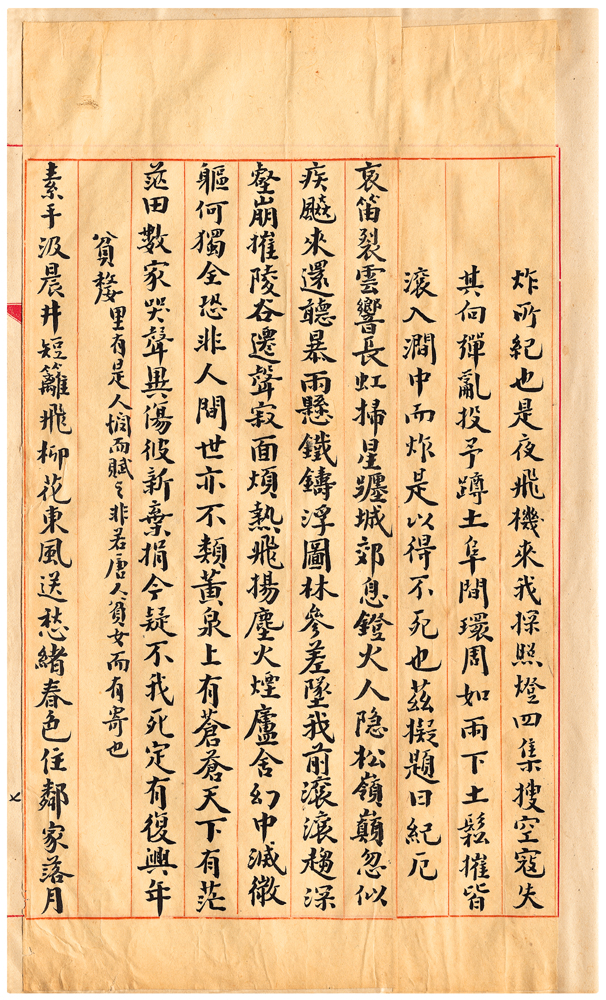 炸所紀也是夜飛機來我探照燈四集搜空寇失
其向彈亂投予蹲土阜間環周如雨下土鬆摧皆
滾入澗中而炸是以得不死也茲擬題曰紀厄
哀笛裂雲響長虹掃星躔城郊息鐙火人隐松嶺巔忽似
疾飈來還聽暴雨懸鐵鑄浮圖林參差墜我前滾滾趨深
壑崩摧陵谷遷聲寂面煩熱飛揚塵火煙廬舍幻中滅微
軀何獨全恐非人間世亦不類黃泉上有蒼蒼天下有茫
茫田數家哭聲異傷彼新棄捐今疑不我死定有復興年
貧嫠里有是人憫而賦之非若唐人貧女而有寄也
素手汲晨井短籬飛柳花東風送愁緒春色住鄰家落月